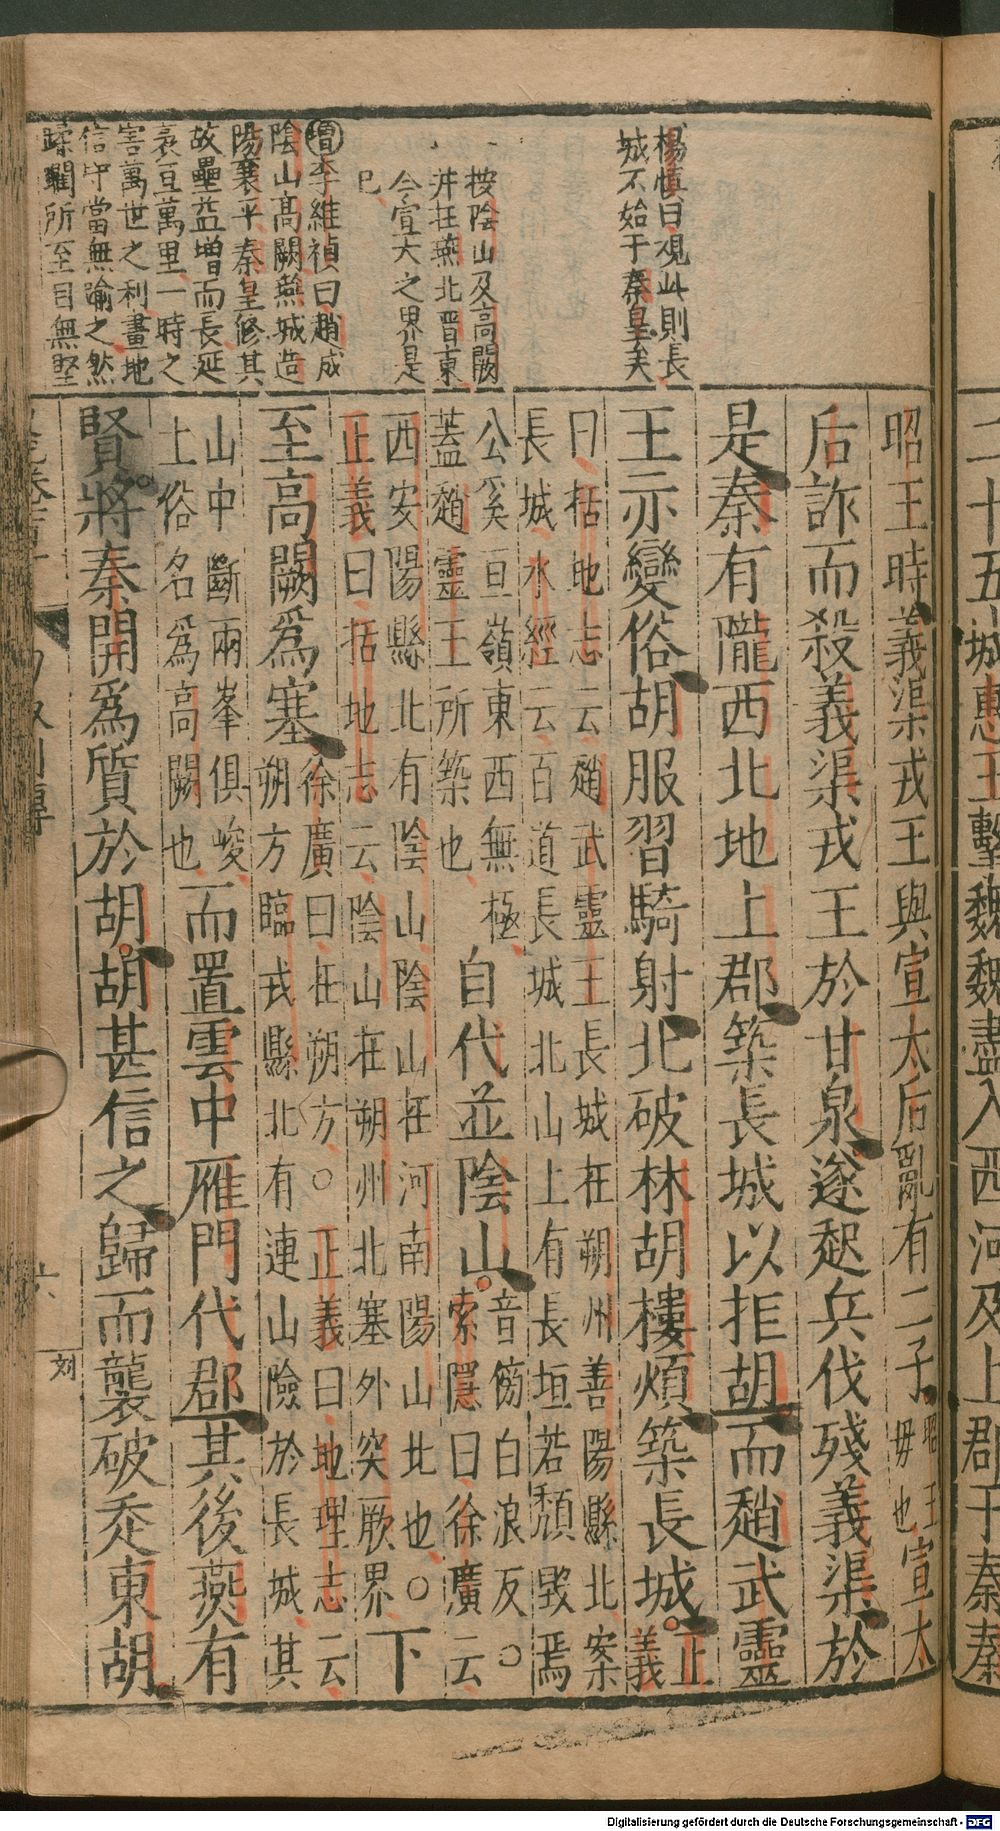 二十五城惠王擊魏魏盡入西河及上郡于秦秦
楊慎曰視此則長
城不始于秦皇矣
按陰山及高闕
并在燕北晉東
今宣大之界是
巳
增李維禎曰趙成
陰山高闕燕城造
陽襄平秦皇修其
故壘益增而長延
袤亘萬里一時之
害萬世之利畫地
信守當無踰之然
蹂躪所至目無堅
昭王時義渠戎王與宣太后亂有二子昭王母也宣太
后詐而殺義渠戎王於甘泉遂起兵伐殘義渠於
是秦有隴西北地上郡築長城以拒胡而趙武靈
王亦變俗胡服習騎射北破林胡樓煩築長城正義
曰括地志云趙武靈王長城在朔州善陽縣北案
長城水經云百道長城北山上有長垣若頹毀焉
公溪亘嶺東西無極
蓋趙靈王所築也
自代並陰山
音傍白浪反○
索隱曰徐廣云
西安陽縣北有陰山陰山在河南陽山北也○
正義曰括地志云陰山在朔州北塞外突厥界
下
至高闕爲塞
徐廣曰在朔方○正義曰地理志云
朔方臨戎縣北有連山險於長城其
山中斷兩峯俱峻
上俗名爲高闕也
而置雲中雁門代郡其後燕有
賢將秦開爲質於胡胡甚信之歸而襲破走東胡
六
刘
Digitalisierung gefördert durch die Deutsche Forschungsgemeinschaft - DFG